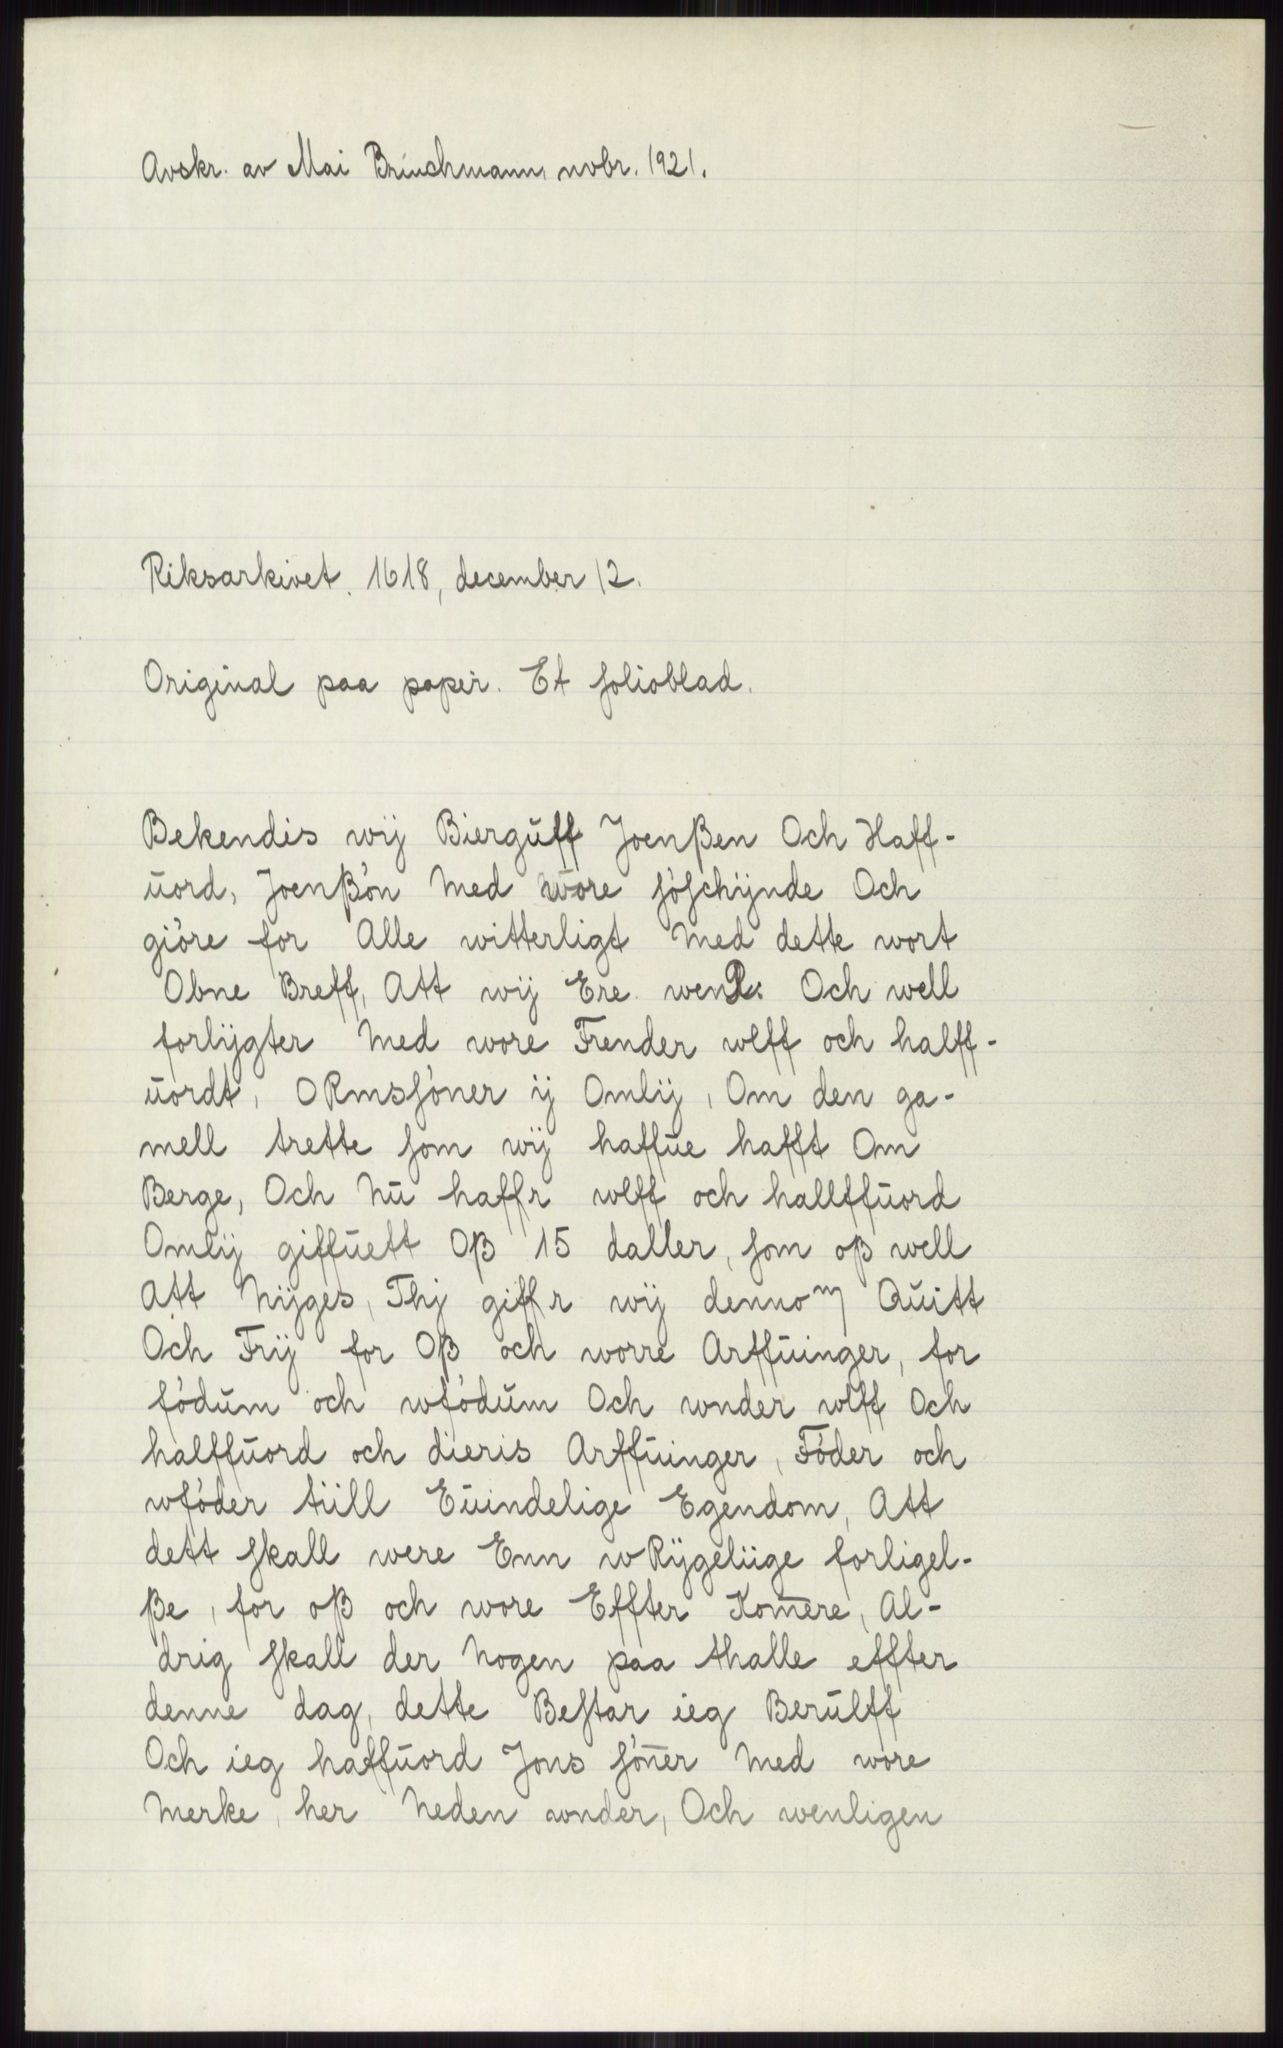 Avskr. av Mai Brinchmann, novbr. 1921.
Riksarkivet. 1618, december 12.
Original paa papir. Et folioblad.
Bekendis wij Biergulff Joenßen Och Haff-
uord, Joenßøn Med wore søschijnde Och
giøre for Alle witterligt Med dette wort
Obne Breff, Att wij Ere wenR: Och well
forlijgter Med wore Frender wlff och halff-
uordt, ORmssøner ij Omlij, Om den ga-
mell trette som wij haffue hafft Om
Berge, Och Nu haffr wlff och hallffuord
Omlij giffuett Oß 15 daller, som oß well
Att Nijges, Thj giffr wij dennom Quitt
Och Frij for Oß och worre Arffuinger, for
fødum och wfødum Och wnder wlff Och
halffuord och dieris Arffuinger, Føder och
wføder tiill Euindelige Egendom, Att
dett skall were Enn wRijgeliige forligel-
ße, for oß och wore Effter Kom̅ere, Al-
drig skall der Nogen paa thalle effter
denne dag, dette Bestar ieg Berulff
Och ieg haffuord Jons søn̅er Med wore
Merke, her Neden wnder, Och wenligen